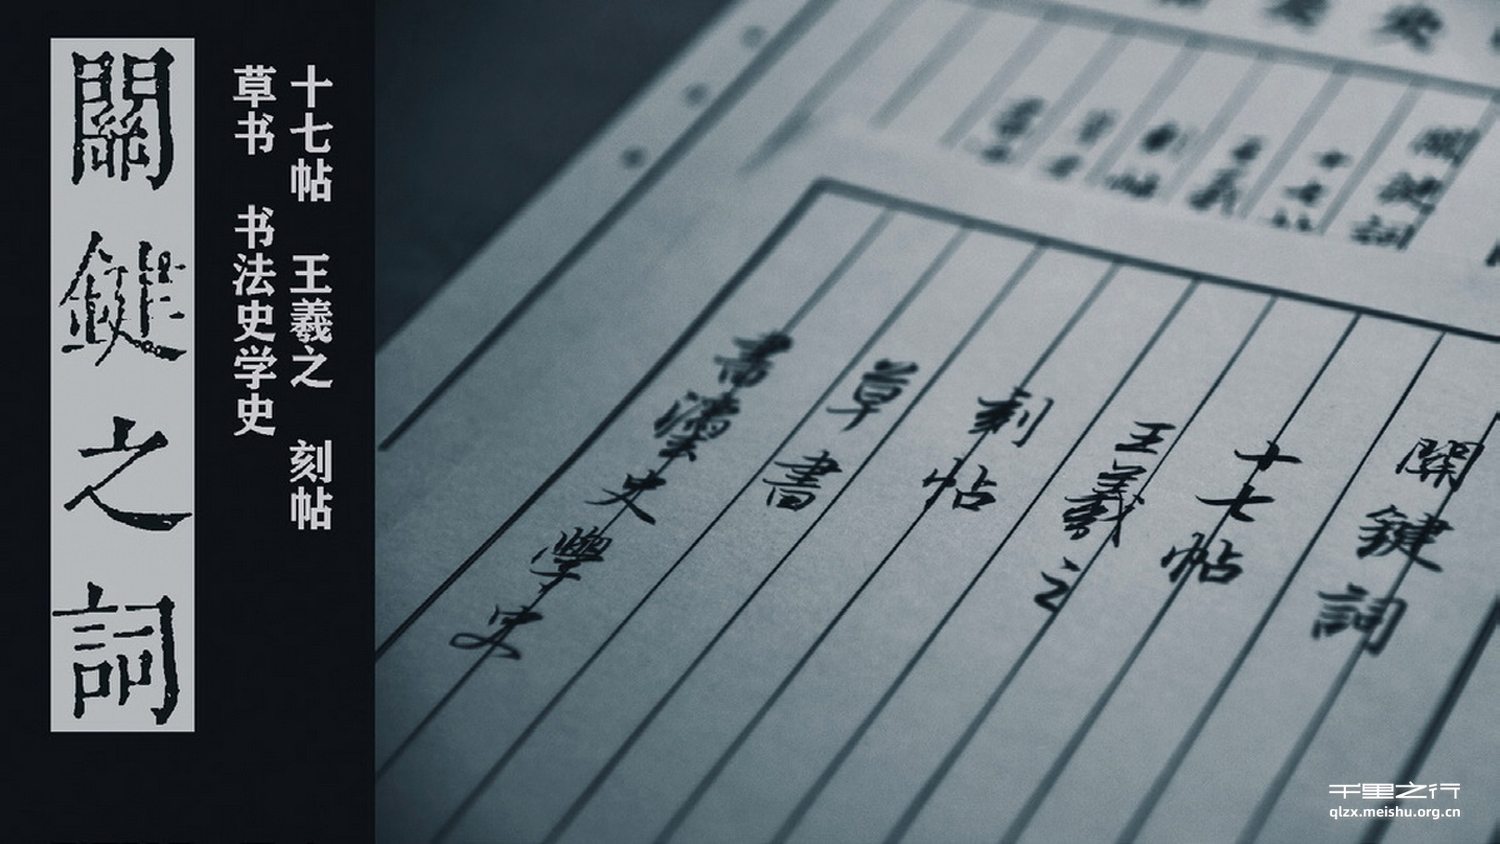 關鍵之詞
十七帖 王羲之 刻帖
草书 书法史学史
關鍵詞
十七帖
王羲之
刻帖
草書
書灋史學史
關鍵詞
十七帖
王羲
刻帖
千里之行
qlzx.meishu.org.cn